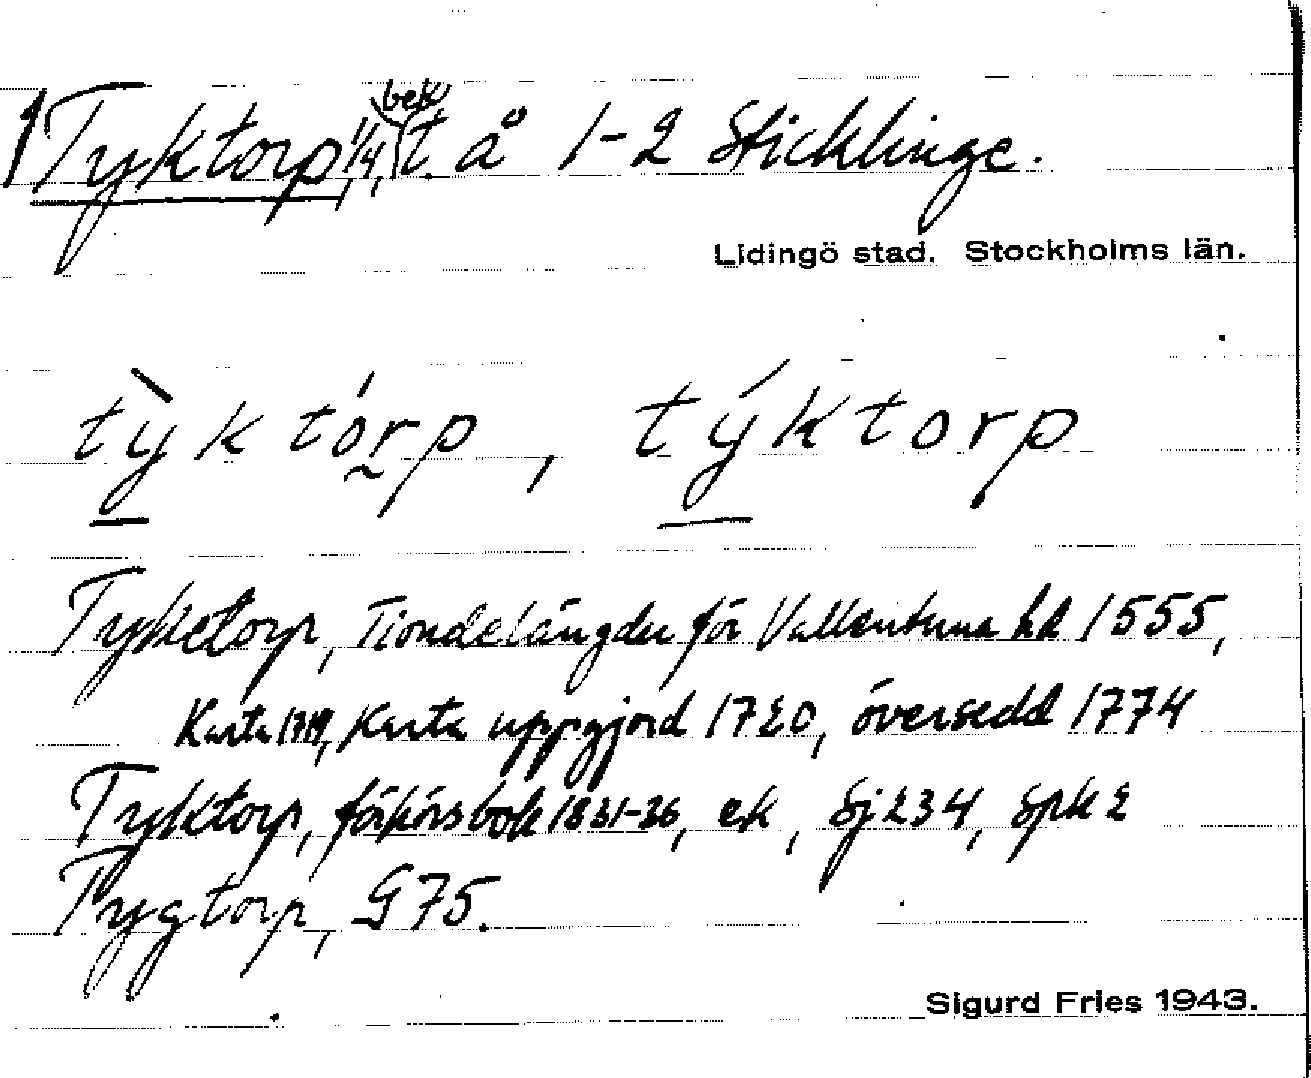 bek
Tyktorp, 1/4, t. å 1-2 Sticklinge.
Lidingö stad. Stockholms län.
tỳktórp, týktorp
Tyketorp, Tiondelängder för Vallentuna hd 1555,
Karta 1719, Karta uppgjord 1720, översedd 1774
Tyktorp, förhörsbok 1821-26, ek, Sj 234, Spk 2
Tygtorp, G 75.
Sigurd Fries 1943.